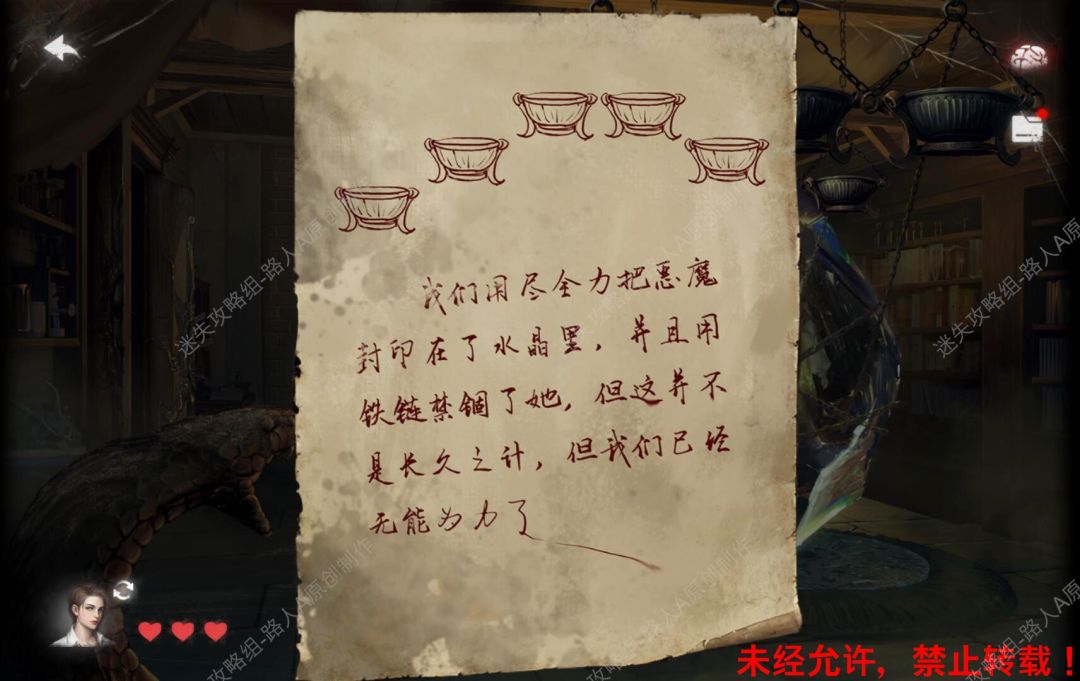 我们用尽全力把恶魔
封印在了水晶里，并且用
铁链禁锢了她，但这并不
是长久之计，但我们已经
无能为力了
迷失攻略组-路人A原创制作
未经允许，禁止转载！